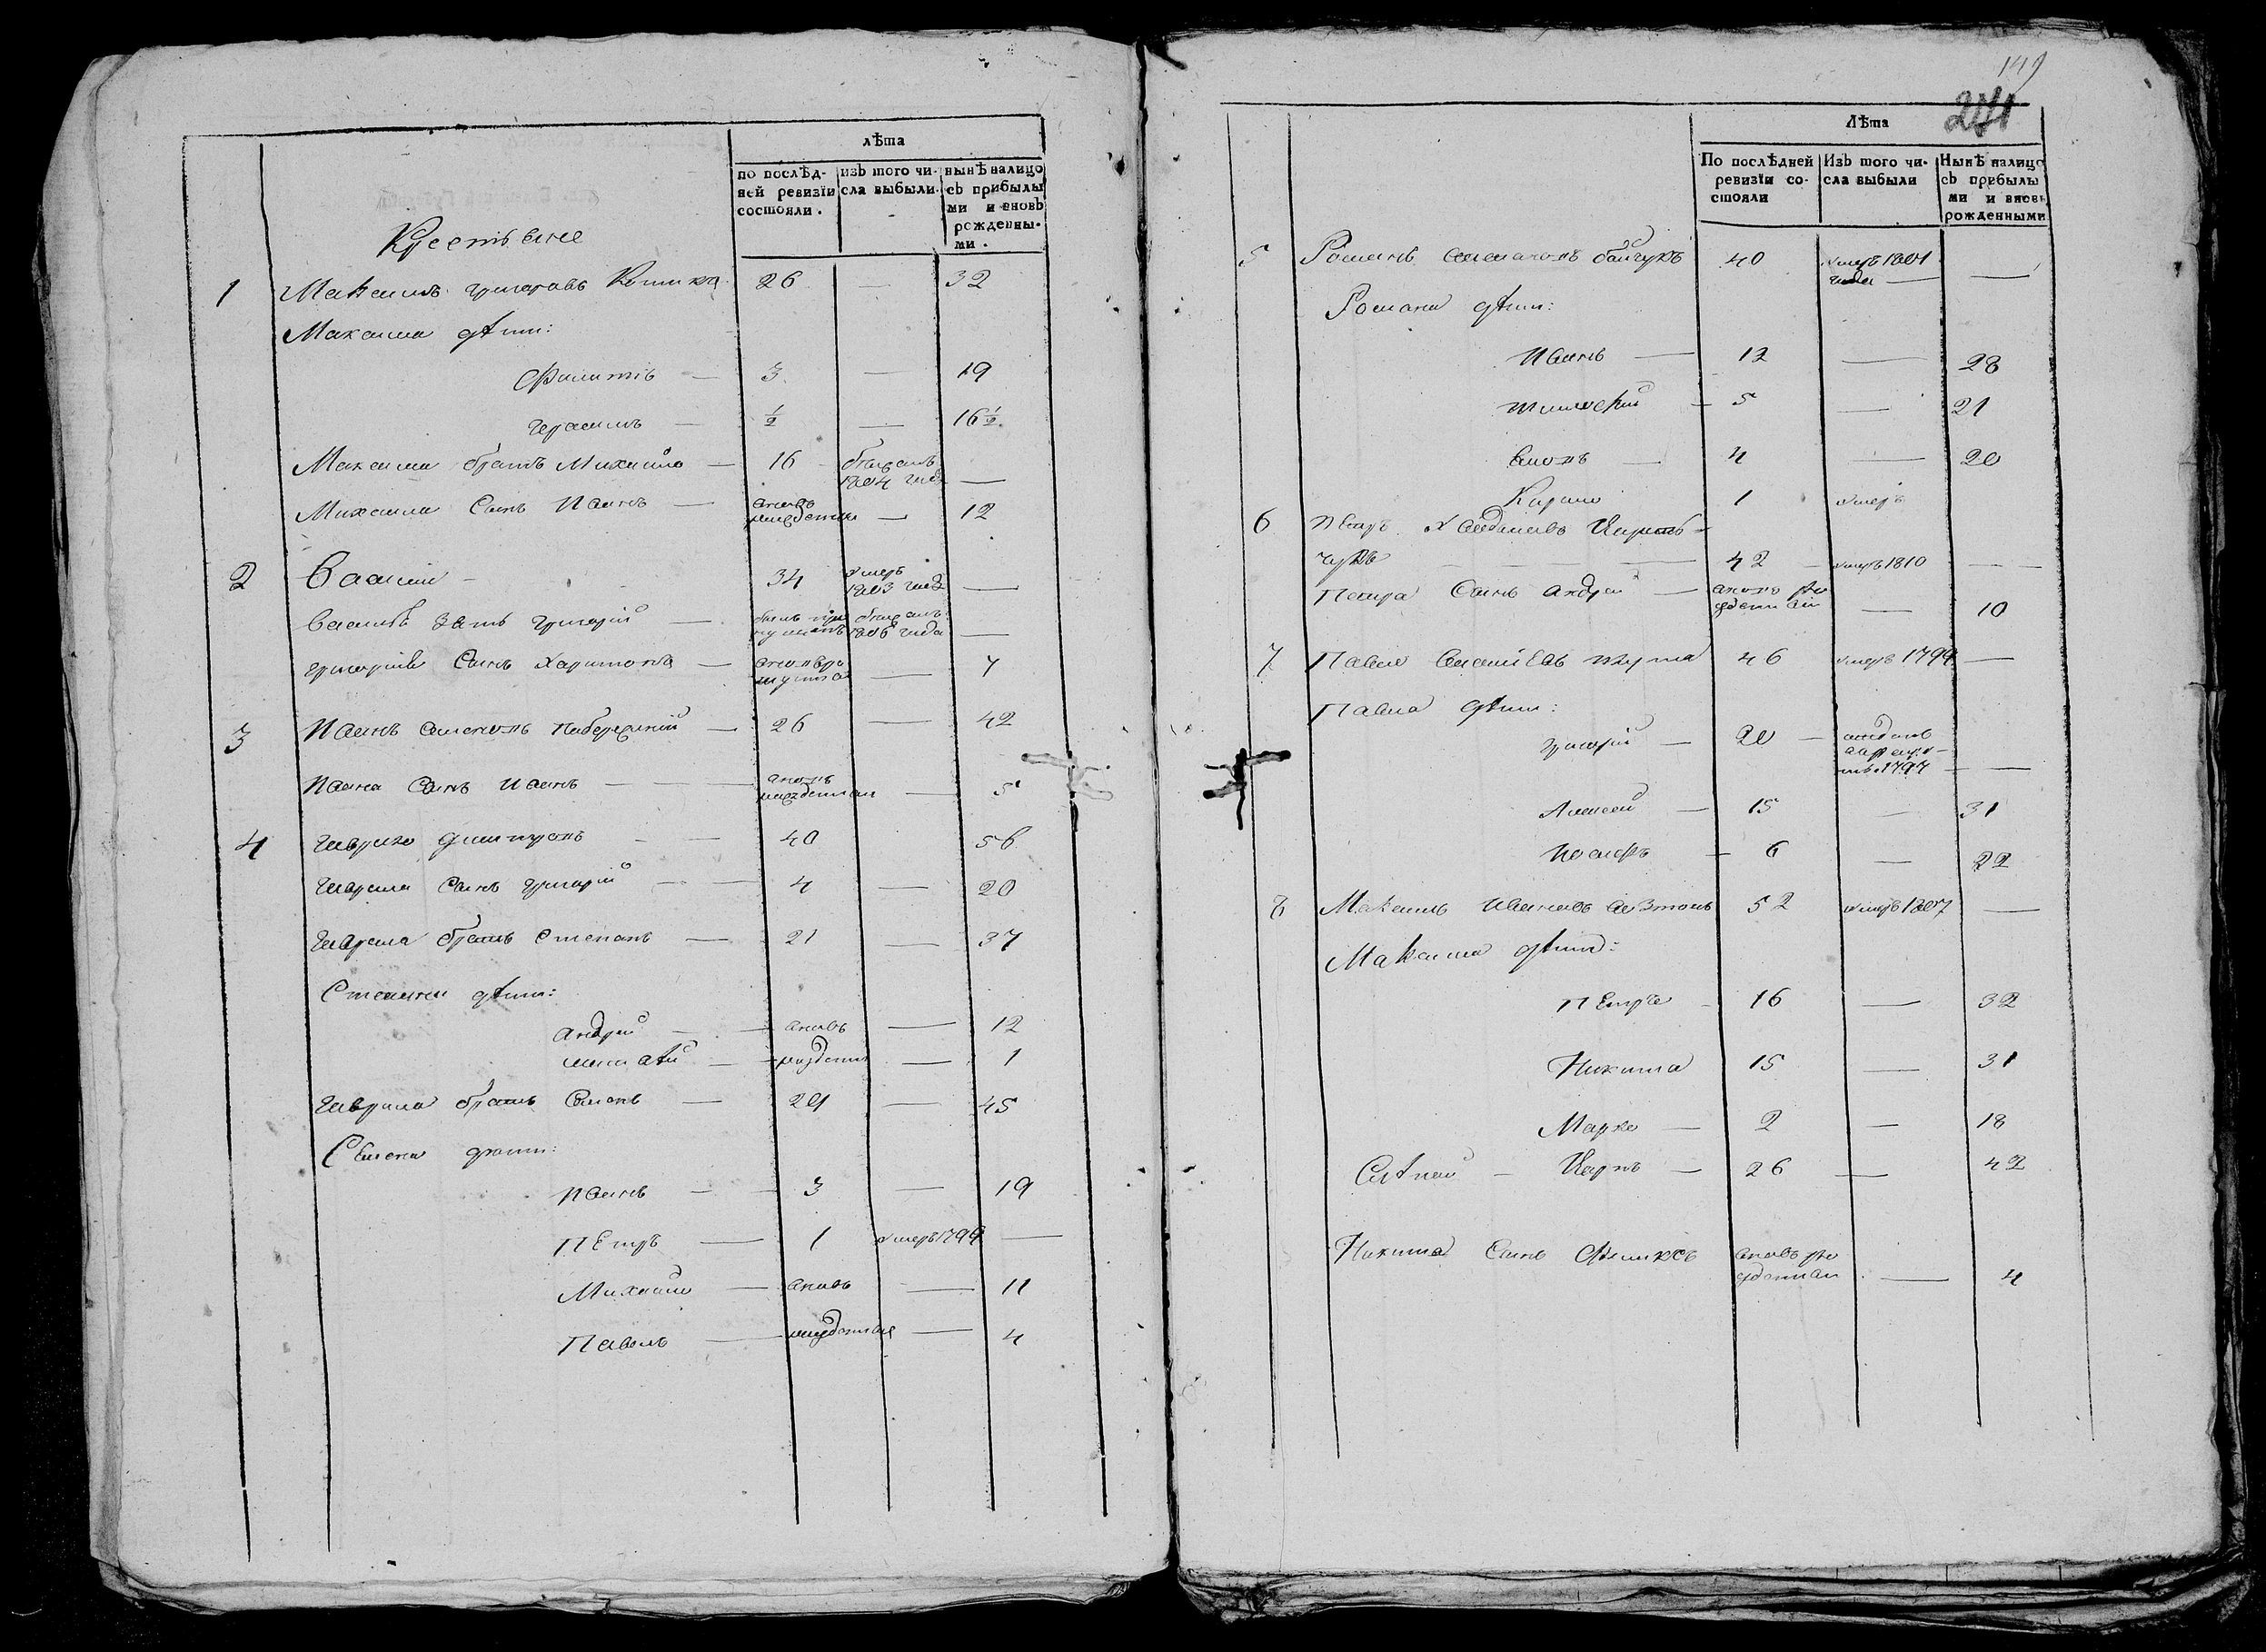 лѣта
по послѣд-
ней ревизіи
состояли.
изъ того чи-
сла выбыли.
нынѣ налицо
съ прибылы
ми и вновь
рожденны-
ми.
Крестьяне
1 Максимъ Григоровъ 26 — 32
Максима дѣти:
Филипъ — 3 — 19
Герасимъ — ½ — 16½
Максима братъ Михайло — 16 1804 —
Михаила Сынъ Иванъ — вновь — 12
2 Василій — 34 умеръ 1803 года —
Василія зять Григорій — 1806 года —
Григорія Сынъ Харитонъ — — 7
3 Иванъ Семеновъ — 26 — 42
Ивана Сынъ Иванъ — вновь рожденный — 5
4 Гаврило 40 56
Гаврила Сынъ Григорій — 4 — 20
Гаврила братъ Степанъ — 21 — 37
Степана дѣти:
Андрей — вновь — 12
— рожденные — 1
Гаврила братъ Семенъ — 29 — 45
Семена дѣти:
Иванъ — 3 — 19
Петръ — 1 умеръ 1799 —
Михайло — вновь — 11
Павелъ — рожденныя — 4
149
281
Лѣта
По послѣдней
ревизіи со-
стояли
Изъ того чи-
сла выбыли
Нынѣ налицо
съ прибылы
ми и вновь
рожденными
5 Романъ Семеновъ 40 умеръ 1801
года — —
Романа дѣти:
Иванъ — 12 — 28
Тимофей — 5 — 21
4 — 20
Кирило 1 умеръ
6 Петръ
42 умеръ 1810 —
Петра Сынъ Андрей — вновь ро
жденный — 10
7 Павло 46 умеръ 1799 —
Павла дѣти:
Григорій — 20 — отданъ
въ рекру-
ты 1797 —
Алексей — 15 — 31
Иосифъ — 6 — 22
8 Максимъ Ивановъ 52 умеръ 1807 —
Максима дѣти:
Петръ — 16 — 32
Никита 15 — 31
Марко — 2 — 18
Карпъ — 26 — 42
Никита Сынъ вновь ро
жденный — 4